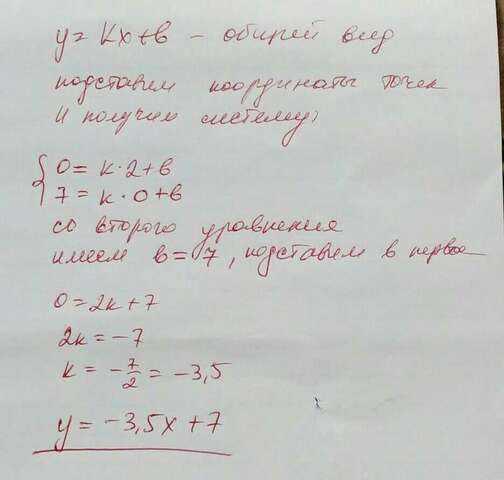 y = kx+b – общий вид
подставим координаты точек
и получим систему:
{ 0 = k·2+b
7 = k·0+b
со второго уравнения
имеем b = 7, подставим в первое
0 = 2k+7
2k = -7
k = -7/2 = -3,5
y = -3,5x+7